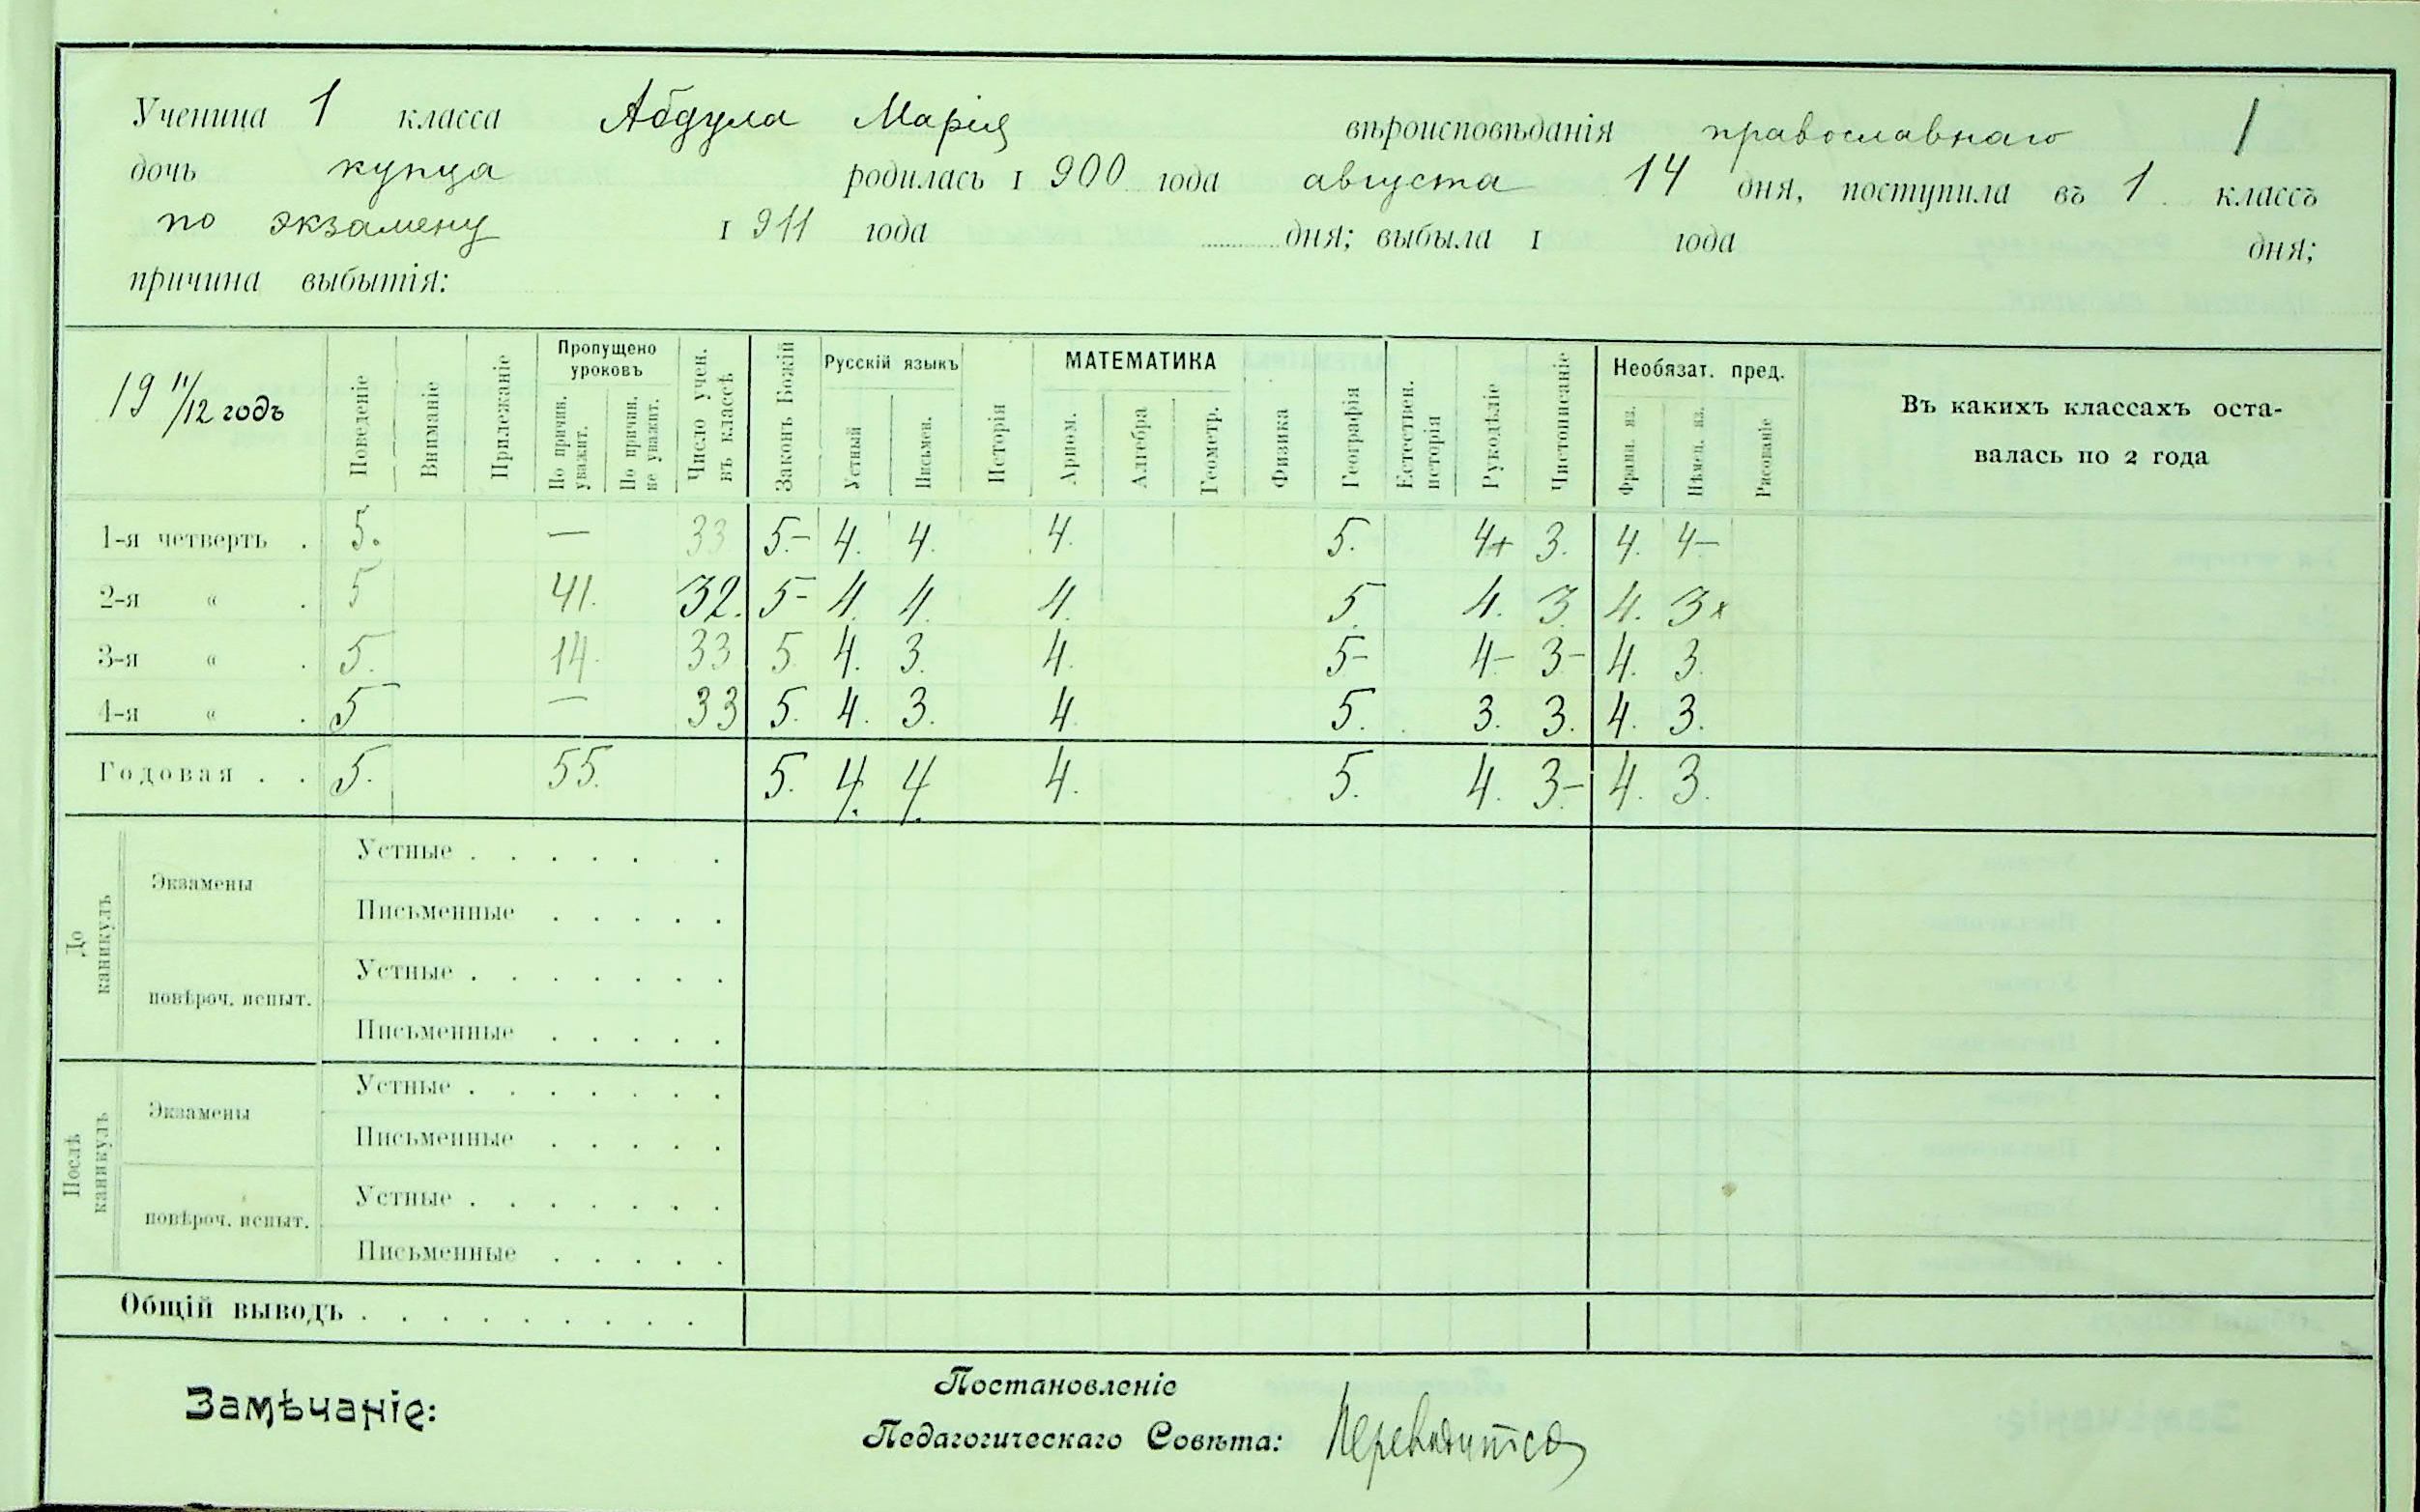 Ученица 1 класса Абдула Марія вѣроисповѣданія православнаго 1
дочь купца родилась 1 900 года августа 14 дня, поступила въ 1 классъ
по экзамену 1 911 года дня; выбыла 1 года дня;
причина выбытія:
19 11/12 годъ
Поведеніе
Вниманіе
Прилежаніе
Пропущено уроковъ
По причин. уважит.
По причин. не уважит.
Число учен. въ классѣ
Законъ Божій
Русскій языкъ
Устный
Письмен.
Исторія
МАТЕМАТИКА
Ариѳм.
Алгебра
Геометр.
Физика
Географія
Естествен. исторія
Рукодѣліе
Чистописаніе
Необязат. пред.
Франц. яз.
Нѣмец. яз.
Рисованіе
Въ какихъ классахъ оста-
валась по 2 года
1-я четверть . 5. — 33 5.- 4. 4. 4. 5. 4+ 3. 4. 4-
2-я « . 5 41. 32. 5- 4. 4. 4. 5. 4. 3. 4. 3+
3-я « . 5. 14. 33 5. 4. 3. 4. 5- 4- 3- 4. 3.
4-я « . 5 — 33 5. 4. 3. 4. 5. 3. 3. 4. 3.
Годовая . . 5. 55. 5. 4. 4. 4. 5. 4. 3.- 4. 3.
До каникулъ
Экзамены
Устные . . . . . .
Письменные . . . . .
повѣроч. испыт.
Устные . . . . . . .
Письменные . . . . .
Послѣ каникулъ
Экзамены
Устные . . . . . . .
Письменные . . . . .
повѣроч. испыт.
Устные . . . . . . .
Письменные . . . . .
Общій выводъ . . . . . . . . .
Замѣчаніе:
Постановленіе
Педагогическаго Совѣта: Переводится